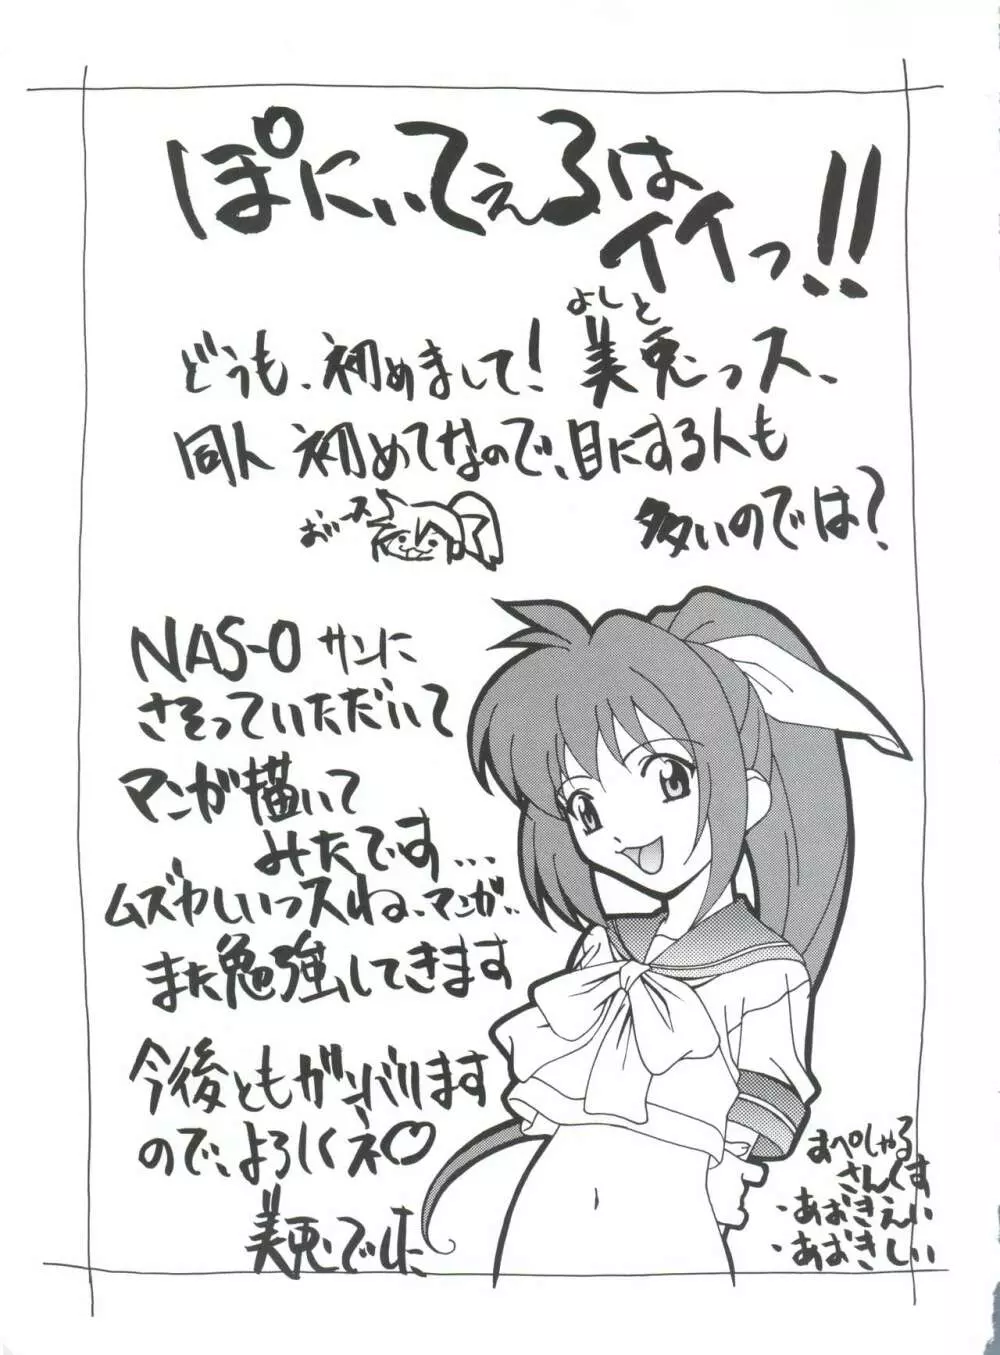 ぽにぃてぇるは
イイっ!!
よしと
どうも、初めまして!美兎っス、
同人初めてなので、目にする人も
多いのでは?
おぃース
NAS-O サンに
さそっていただいて
マンガ描いて
みたです...
ムズかしいっスねマンガ..
また勉強してきます
今後ともガンバリます
ので、よろしくネ♡
美兎でした
すぺしゃる
さんくす
・あおきえい
・あおきしい